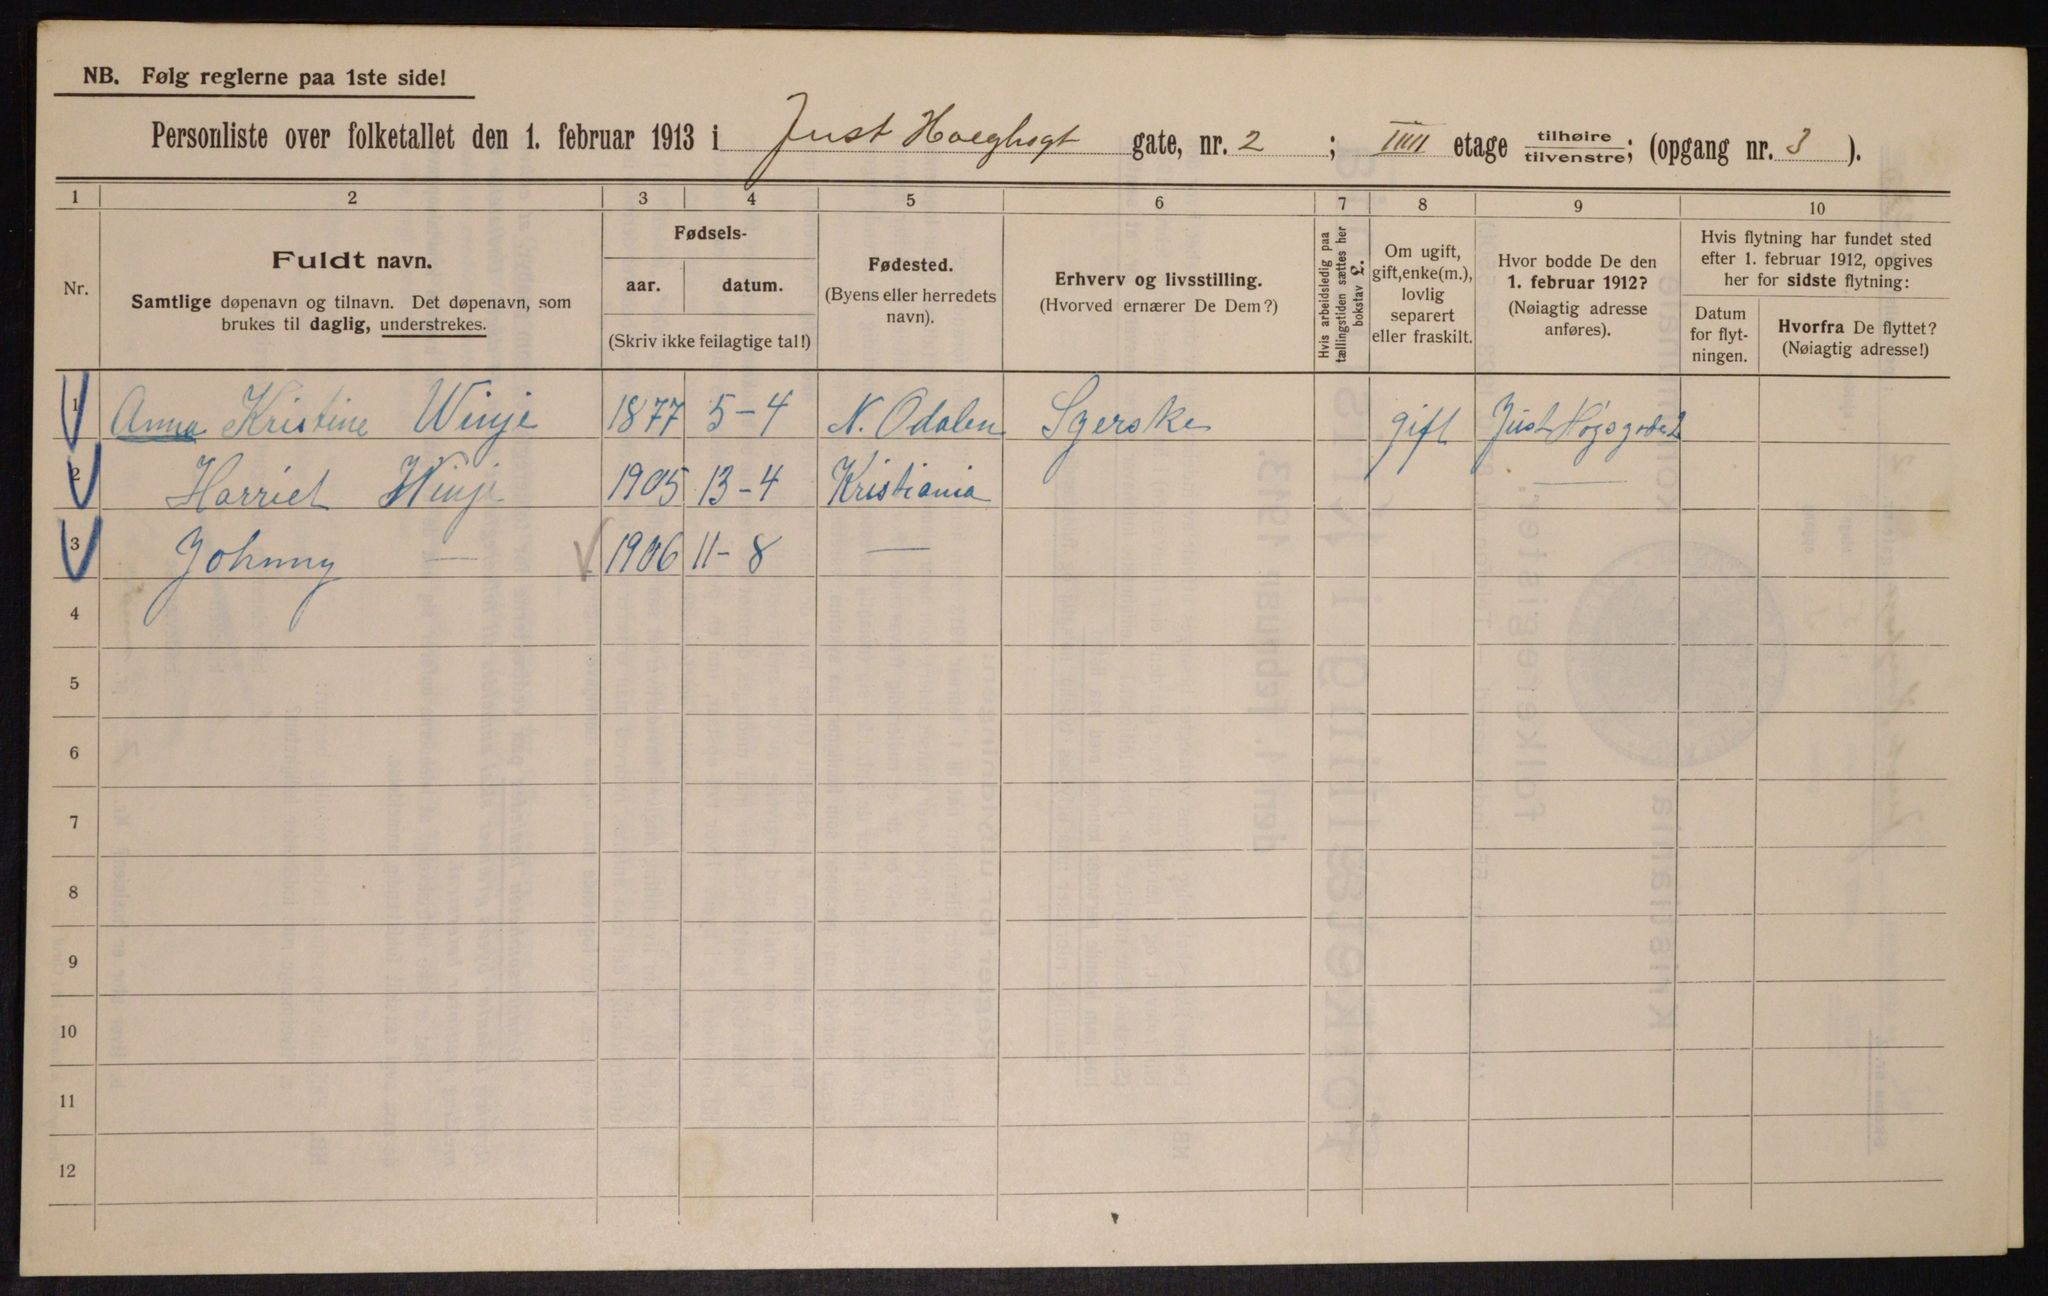 NB. Følg reglerne paa 1ste side!
Personliste over folketallet den 1. februar 1913 i Just Hoeghsgt gate, nr. 2 ; IIII etage tilhøire/tilvenstre; (opgang nr. 3 ).
1 2 3 4 5 6 7 8 9 10
Nr.
Fuldt navn.
Samtlige døpenavn og tilnavn. Det døpenavn, som
brukes til daglig, understrekes.
Fødsels-
aar. datum.
(Skriv ikke feilagtige tal!)
Fødested.
(Byens eller herredets
navn).
Erhverv og livsstilling.
(Hvorved ernærer De Dem?)
Hvis arbeidsledig paa
tællingstiden sættes her
bokstav £.
Om ugift,
gift, enke(m.),
lovlig
separert
eller fraskilt.
Hvor bodde De den
1. februar 1912?
(Nøiagtig adresse
anføres).
Hvis flytning har fundet sted
efter 1. februar 1912, opgives
her for sidste flytning:
Datum
for flyt-
ningen.
Hvorfra De flyttet?
(Nøiagtig adresse!)
1 Anna Kristine Winje 1877 5-4 N. Odalen Syerske gift Just Høgsgade 2
2 Harriet Winje 1905 13-4 Kristiania —
3 Johnny — 1906 11-8 —
4
5
6
7
8
9
10
11
12